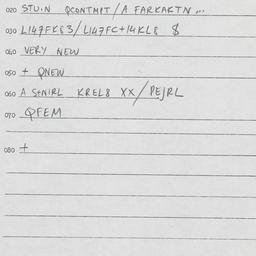 020 STU.N QCONTMPT/A FARKAKTN...
030 L147FK83/L147FC+14KL8 $
040 VERY NEW
050 + QNEW
060 A SENIRL KREL8 XX/PEJRL
070 QFEM
080 +